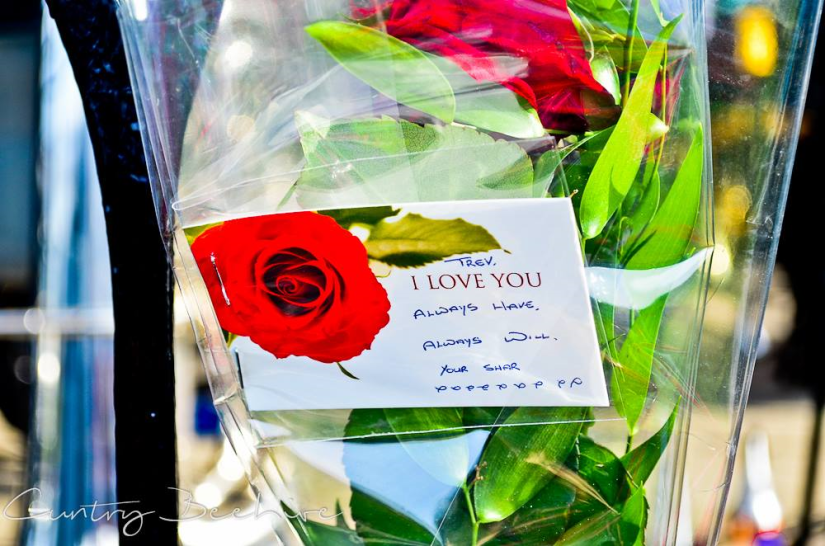 TREV.
I LOVE YOU
ALWAYS HAVE.
ALWAYS WILL.
YOUR SHAR
Cuntry Beehive